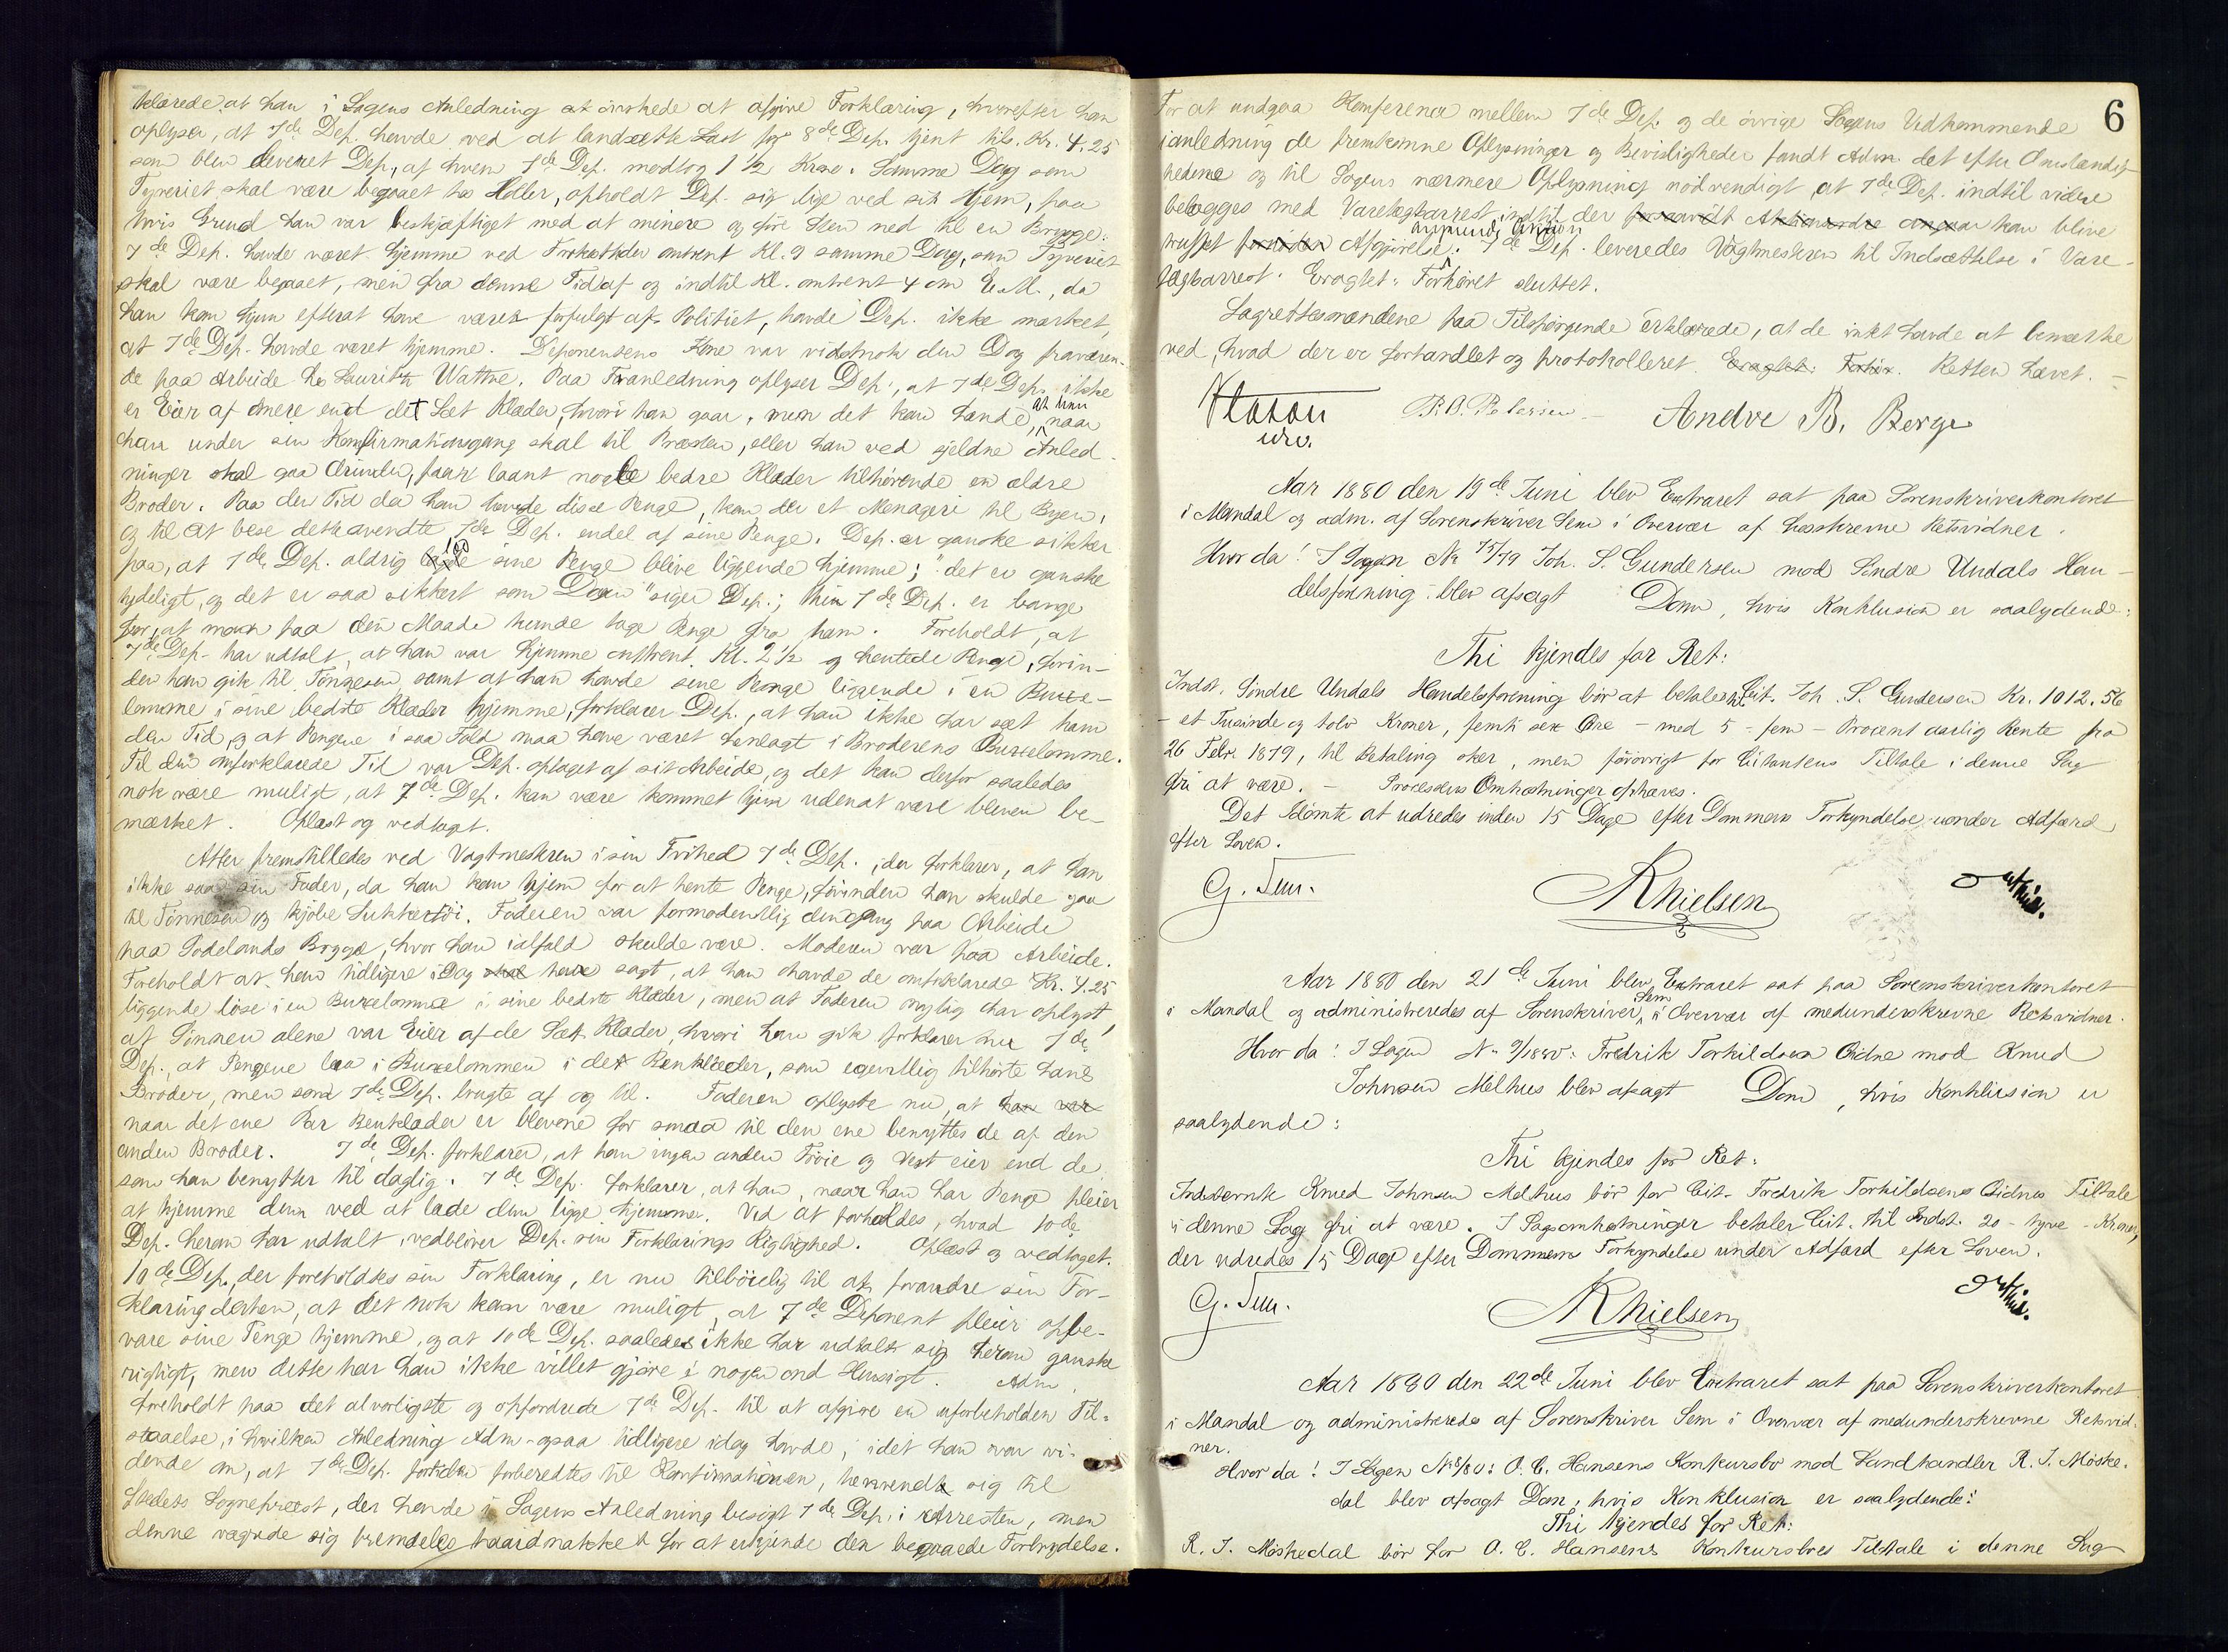 klarede at han i Sagens Anledning at ønskede at afgive Forklaring, hvorefter han
oplyser, at 7de Dep. havde ved at landsætte Last fra 8de Dep. tjent tils. Kr. 4.25
som blev leveret Dep., af hvem 7de Dep. modtog 1 1/2 Krone. Samme Dag som
Tyveriet skal være begaaet hos Holler, opholdt Dep. sig lige ved sit Hjem, paa
hvis Grund han var beskjæftiget med at minere og føre Sten ned til en Brygge.
7de Dep. havde været hjemme ved Frokosttider omtrent Kl. 9 samme Dag, som Tyveriet
skal være begaaet, men fra denne Tid af og indtil Kl. omtrent 4 om E.M., da
han kom hjem efterat have været forfulgt af Politiet, havde Dep. ikke mærket,
at 7de Dep. havde været hjemme. Deponentens Kone var vidstnok den Dag fraværen-
de paa Arbeide hos Lauritz Wattne. Paa Foranledning oplyser Dep., at 7de Dep. ikke
er Eier af mere end det Sæt Klæder, hvori han gaar, men det kan hænde, at han naar
han under sin Konfirmationsgang skal til Præsten, eller han ved sjeldne Anled-
ninger skal gaa Ærinder, faar laant nogle bedre Klæder tilhørende en ældre
Broder. Paa den Tid da han havde disse Penge, kom der et Menageri til Byen,
og til at bese dette anvendte 7de Dep. endel af sine Penge. Dep. er ganske sikker
paa, at 7de Dep. aldrig lod sine Penge blive liggende hjemme; "det er ganske
tydeligt, og det er saa sikkert som Dagen" siger Dep.; thi 7de Dep. er bange
for, at man paa den Maade kunde tage Penge fra ham. Foreholdt, at
7de Dep. har udtalt, at han var hjemme omtrent Kl. 2 1/2 og hentede Penge, forin-
den han gik til Tønnesen samt at han havde sine Penge liggende i en Buxe-
lomme i sine bedste Klæder hjemme, forklarer Dep., at han ikke har sæt ham
den Tid, og at Pengene i saa Fald maa have været henlagt i Broderens Buxelomme.
Til den omforklarede Tid var Dep. optaget af sit Arbeide, og det kan derfor saaledes
nok være muligt, at 7de Dep. kan være kommet hjem udenat være bleven be-
mærket. Oplæst og vedtaget.
Atter fremstilledes ved Vagtmesteren i sin Frihed 7de Dep., der forklarer, at han
ikke saa sin Fader, da han kom hjem for at hente Penge, førinden han skulde gaa
til Tønnesen og kjøbe Sukkertøi. Faderen var formodentlig dengang paa Arbeide
paa Todelands Brygge, hvor han ialfald skulde være. Moderen var paa Arbeide.
Foreholdt at han tidligere idag skal have sagt, at han havde de omforklarede Kr. 4.25
liggende løse i en Buxelomme i sine bedste Klæder, men at Faderen nylig har oplyst,
at Sønnen alene var Eier af de Sæt Klæder, hvori han gik forklarer nu 7de
Dep., at Pengene laa i Buxelommen i det Benklæder, som egentlig tilhørte hans
Broder, men som 7de Dep. brugte af og til. Faderen oplyste nu, at han var
naar det ene Par Benklæder er blevene for smaa til den ene benyttes de af den
anden Broder. 7de Dep. forklarer, at han ingen anden Trøie og Vest eier end de
som han benytter til daglig. 7de Dep. forklarer, at han, naar han har Penge pleier
at hjemme dem ved at lade dem ligge hjemme. Ved at forholdes, hvad 10de
Dep. herom har udtalt, vedbliver Dep. sin Forklarings Rigtighed. Oplæst og vedtaget.
10de Dep., der foreholdtes sin Forklaring, er nu tilbøielig til at forandre sin For-
klaring derhen, at det nok kan være muligt, at 7de Deponent pleier opbe-
vare sine Penge hjemme, og at 10de Dep. saaledes ikke har udtalt sig herom ganske
rigtigt, men dette har han ikke villet gjøre i nogen ond Hensigt. Adm.
foreholdt paa det alvorligste og opfordrede 7de Dep. til at afgive en uforbeholden Til-
staaelse, i hvilken Anledning Adm. ogsaa tidligere idag havde, idet han var vi-
dende om, at 7de Dep. fortiden forberedtes til Konfirmationen, henvendt sig til
Stedets Sognepræst, der havde i Sagens Anledning besøgt 7de Dep. i Arresten, men
denne vægrede sig fremdeles haardnakket for at erkjende den begaaede Forbrydelse.
6
For at undgaa Konference mellem 7de Dep. og de øvrige Sagens Vedkommende
ianledning de fremkomne Oplysninger og Bevisligheder fandt Adm. det efter Omstændig-
hederne og til Sagens nærmere Oplysning nødvendigt, at 7de Dep. indtil videre
belægges med Varetægtsarrest indtil der kan blive
truffet Afgjørelse angaaende Aktion. 7de Dep. leveredes Vagtmesteren til Indsættelse i Vare-
tægtsarrest. Eragtet: Forhøret sluttet.
Lagrettesmændene paa Tilspørgende erklærede, at de intet havde at bemærke
ved, hvad der er forhandlet og protokolleret. Eragtet: Forhør. Retten hævet. –
P. O. Petersen – Andre B. Berge
Aar 1880 den 19de Juni blev Extraret sat paa Sorenskriverkontoret
i Mandal og adm. af Sorenskriver Sem i Overvær af Retsvidner.
Hvor da! I Sagen No 75/79 Joh. S. Gundersen mod Søndre Undals Han-
delsforening blev afsagt Dom, hvis Konklusion er saalydende:
Thi kjendes for Ret:
Indst. Søndre Undals Handelsforening bør at betale til Cit. Joh. S. Gundersen Kr. 1012.56
– et Tusinde og tolv Kroner, femti sex Øre – med 5 – fem – Procent aarlig Rente fra
26 Febr. 1879, til Betaling sker, men forøvrigt for Citantens Tiltale i denne Sag
fri at være. – Processens Omkostninger ophæves.
Det Idømte at udredes inden 15 Dage efter Dommens Forkyndelse under Adfærd
efter Loven.
G. Sem. Nielsen
Aar 1880 den 21de Juni blev Extraret sat paa Sorenskriverkontoret
i Mandal og administreredes af Sorenskriver Sem i Overvær af medunderskrevne Retsvidner.
Hvor da! I Sagen No 9/1880: Fredrik Torkildsen Eidne mod Knud
Johnsen Melhus blev afsagt Dom, hvis Konklusion er
saalydende:
Thi kjendes for Ret:
Indstevnte Knud Johnsen Melhus bør for Cit. Fredrik Torkildsens Eidnes Tiltale
i denne Sag fri at være. I Sagsomkostninger betaler Cit. til Indst. 20 – tyve – Kroner,
der udredes 15 Dage efter Dommens Forkyndelse under Adfærd efter Loven.
G. Sem. Nielsen
Aar 1880 den 22de Juni blev Extraret sat paa Sorenskriverkontoret
i Mandal og administreredes af Sorenskriver Sem i Overvær af medunderskrevne Retsvid-
ner.
Hvor da! I Sagen No 8/80: O. C. Hansens Konkursbo mod Landhandler R. I. Møske-
dal blev afsagt Dom, hvis Konklusion er saalydende:
Thi kjendes for Ret:
R. I. Møskedal bør for O. C. Hansens Konkursboes Tiltale i denne Sag